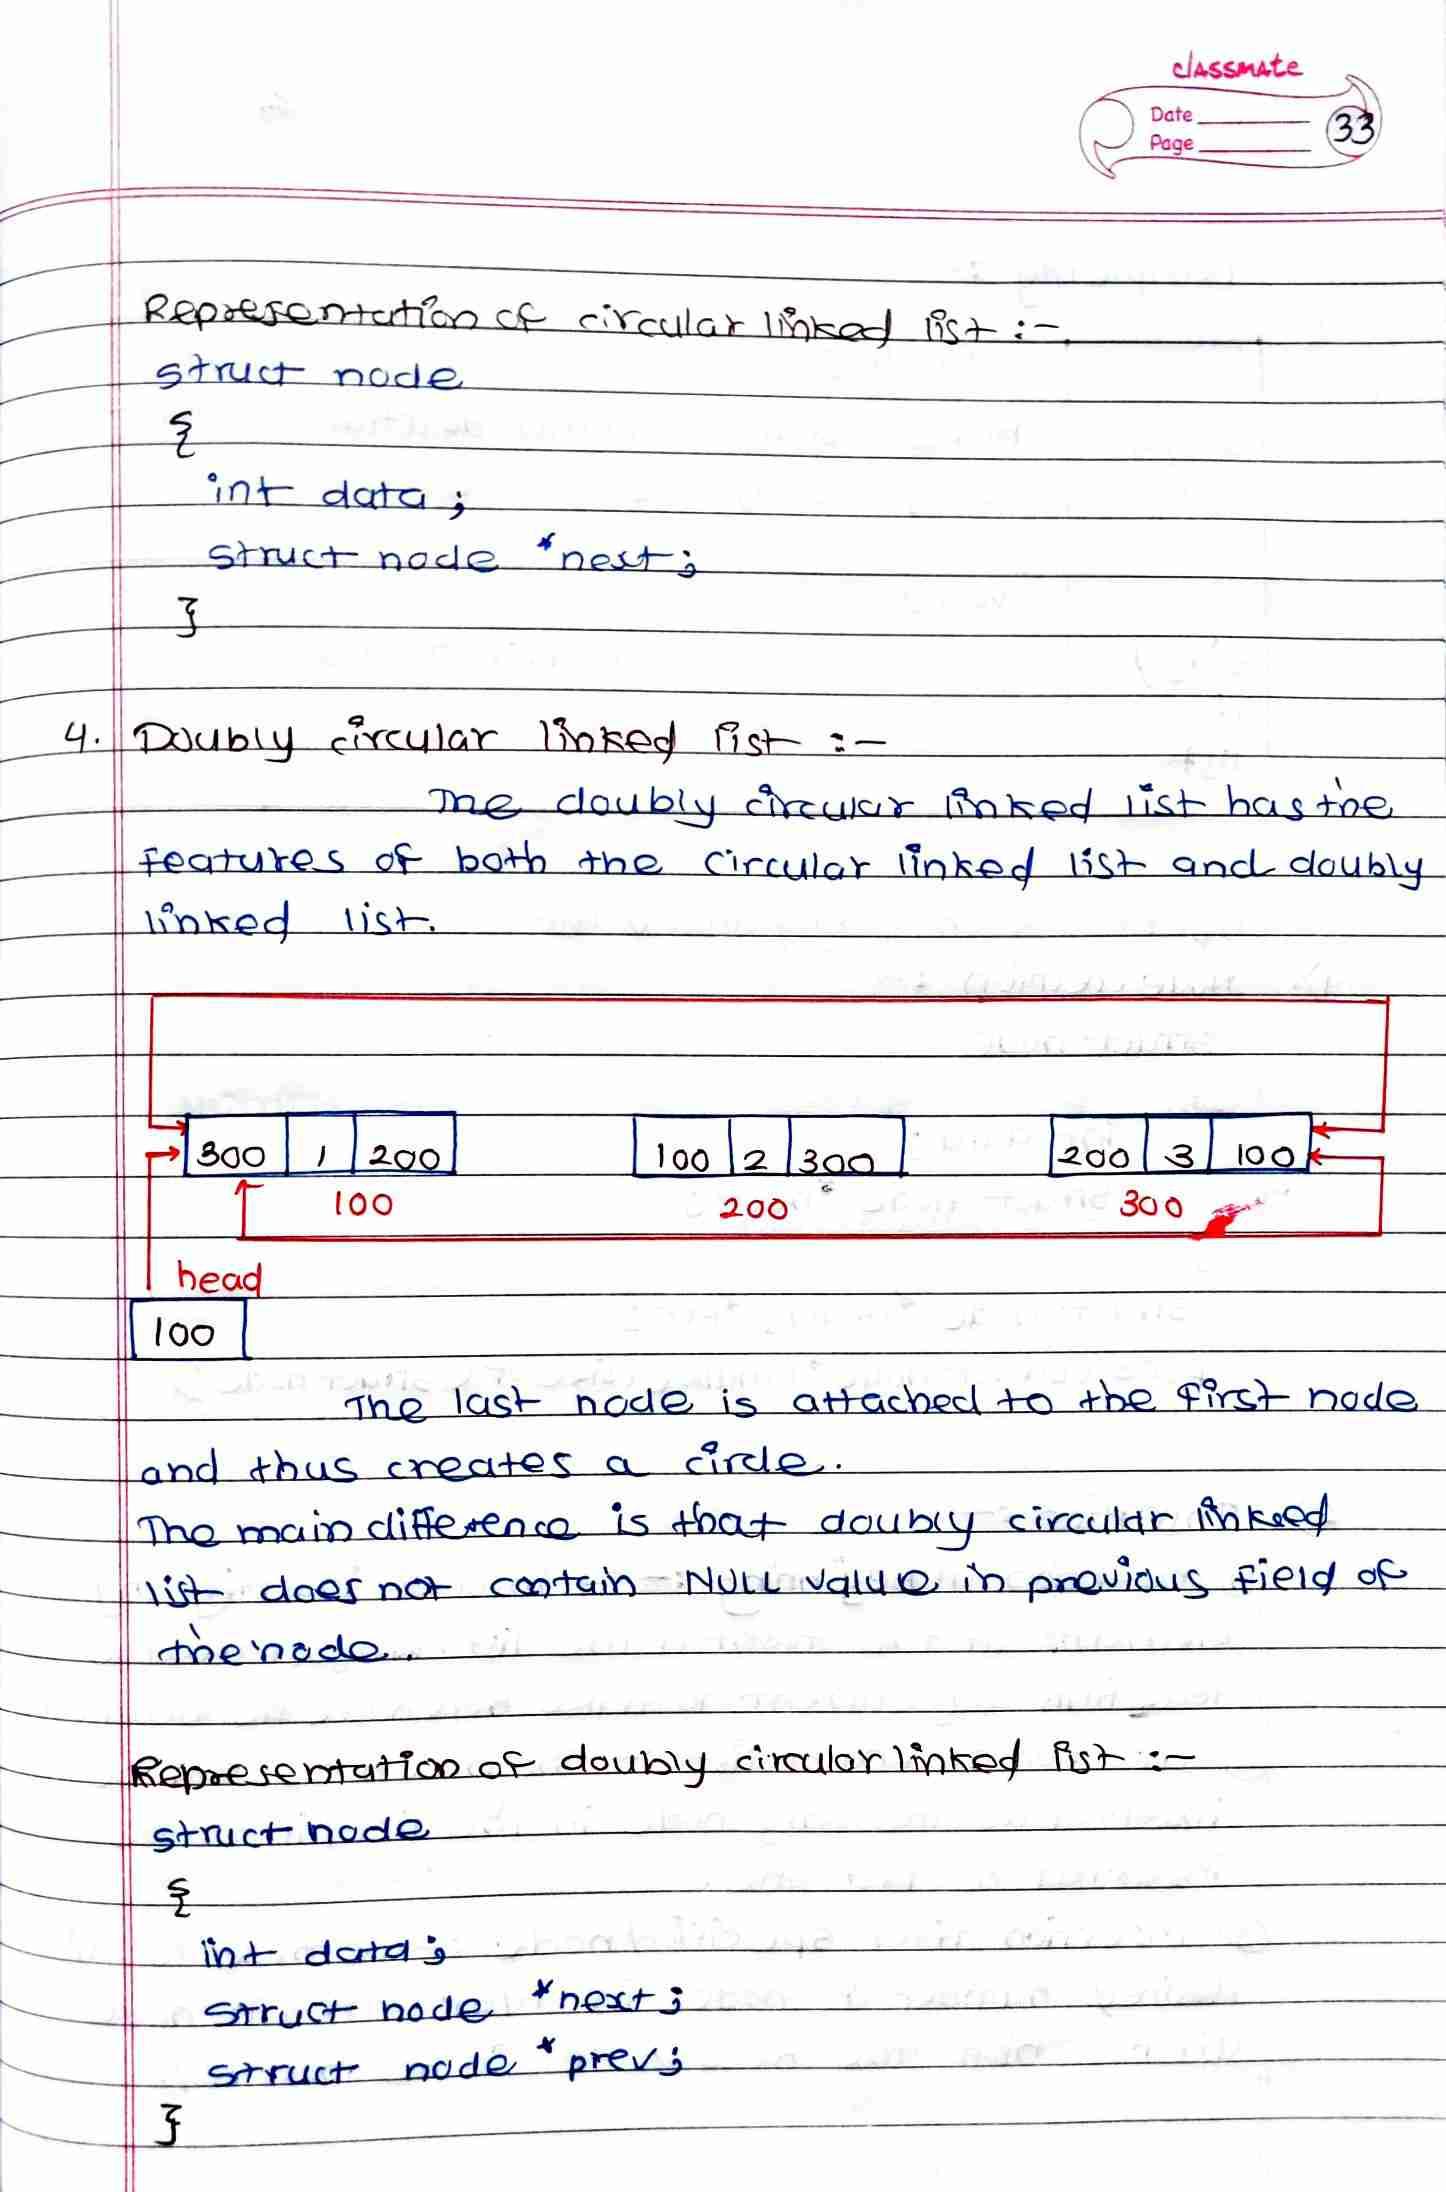 classmate
Date
Page
33
Representation of circular linked list :-
struct node
{
int data;
struct node *next;
}
4. Doubly circular linked list :-
The doubly circular linked list has the
features of both the circular linked list and doubly
linked list.
300 1 200
100 2 300
200 3 100
100
200
300
head
100
The last node is attached to the first node
and thus creates a circle.
The main difference is that doubly circular linked
list does not contain NULL value in previous field of
the node.
Representation of doubly circular linked list :-
struct node
{
int data;
struct node *next;
struct node *prev;
}